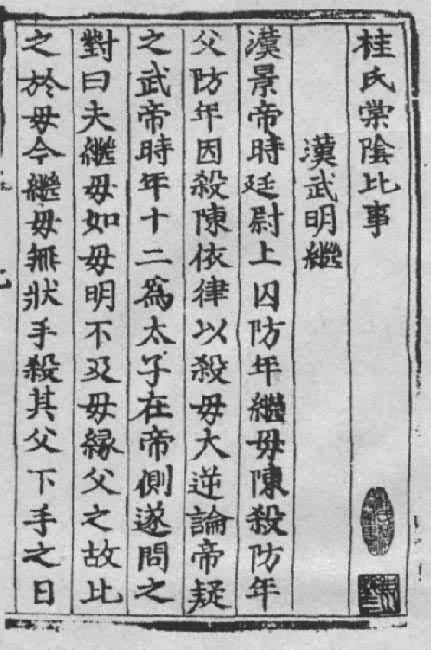 桂氏棠陰比事
漢武明繼
漢景帝時廷尉上囚防年繼母陳殺防年
父防年因殺陳依律以殺母大逆論帝疑
之武帝時年十二為太子在帝側遂問之
對曰夫繼母如母明不及母緣父之故比
之於母今繼母無狀手殺其父下手之日